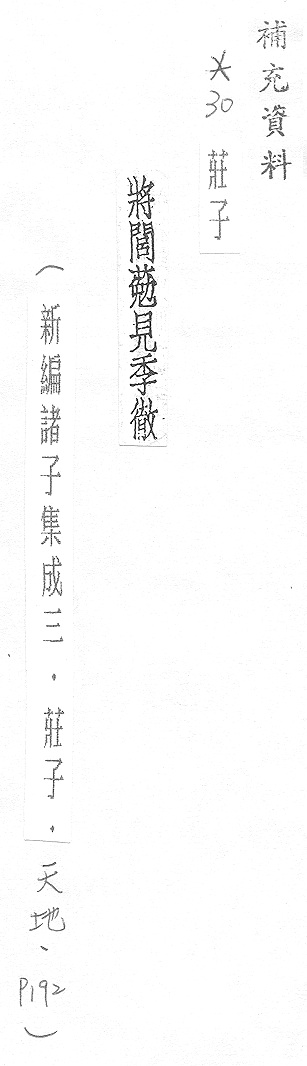 補充資料
*30 莊子
將閭葂見季徹
(新編諸子集成三．莊子．天地、P192)